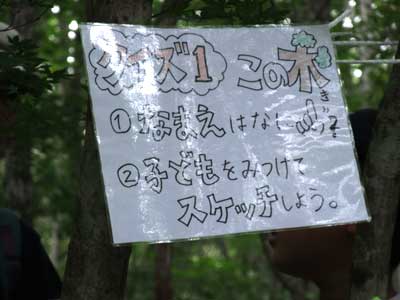 クイズ1 この木
き
① なまえはなに?
② 子どもをみつけて
スケッチしよう。